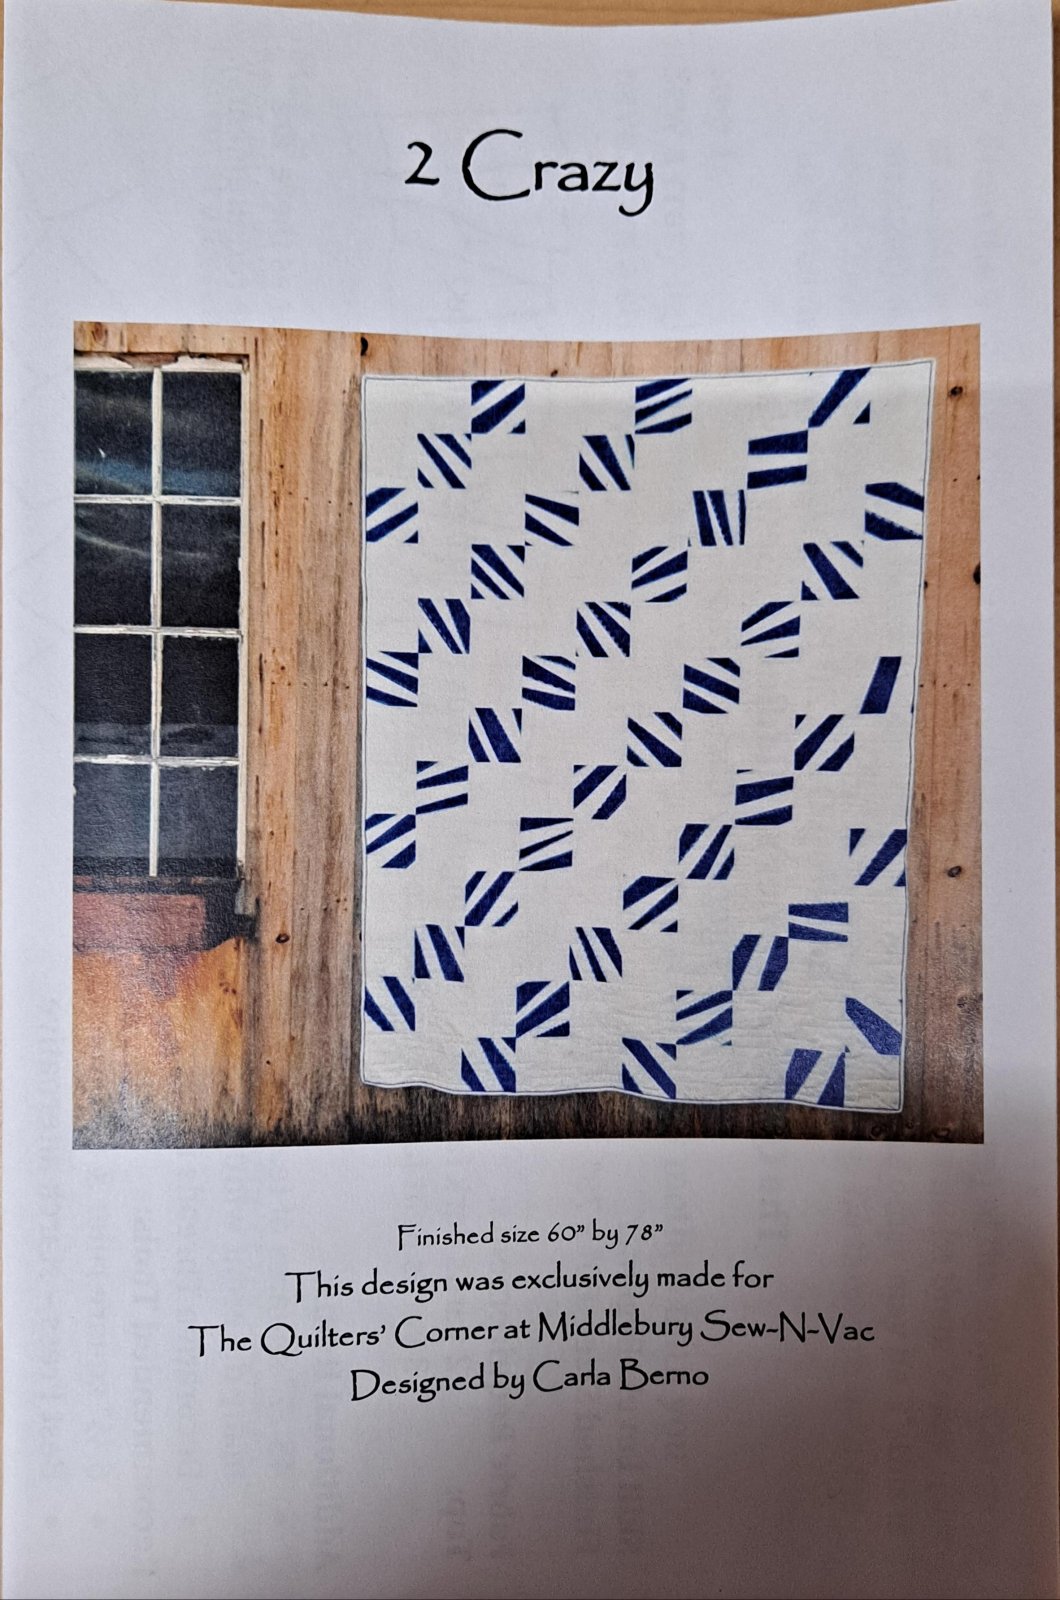 2 Crazy
Finished size 60" by 78"
This design was exclusively made for
The Quilters' Corner at Middlebury Sew-N-Vac
Designed by Carla Berno